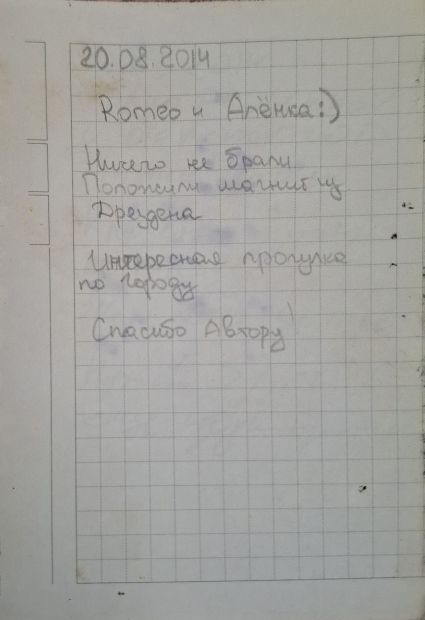 20.08.2014
Romeo и Алёнка:)
Ничего не брали
Положили магнит из
Дрездена
Интересная прогулка
по городу
Спасибо Автору!